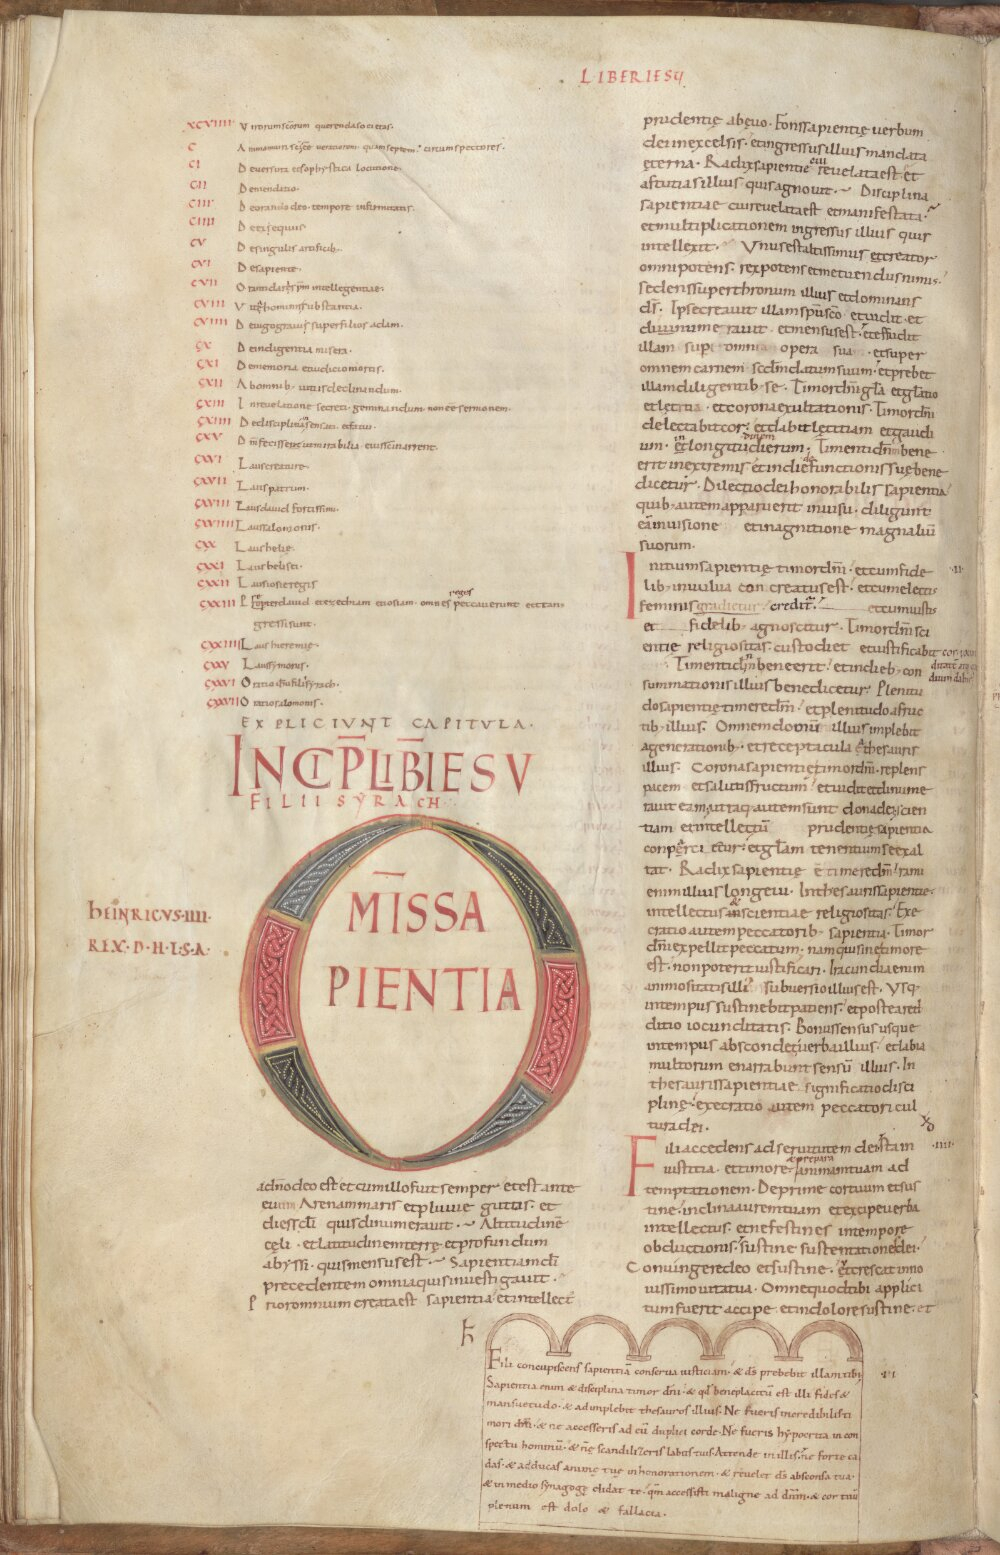 LIBER IESU
XCVIIII Virorum scorum querenda societas.
C
CI D
CII De mendatio.
CIII De orando deo tempore infirmitatis.
CIIII De exsequiis.
CV De singulis artificib.
CVI De sapiente.
CVII
CVIII V hominis substantia.
CVIIII De iugo gravi super filios adam.
CX De indigentia misera.
CXI De memoria et iudicio mortis.
CXII Abominib. vitiis declinandum.
CXIII In revelatione secreti. geminandum non ee sermonem.
CXIIII De disciplina sensati.
CXV
CXVI Laus creature.
CXVII Laus patrum.
CXVIII Laus david fortissimi.
CXVIIII Laus salomonis.
CXX Laus helie.
CXXI Laus helisei.
CXXII Laus iosie regis
CXXIII Propter david et ezechiam et iosiam. omnes reges peccaverunt et trans
gressi sunt.
CXXIIII Laus hieremie.
CXXV Laus symonis.
CXXVI Oratio ihu filii syrach.
CXXVII Oratio salomonis.
EXPLICIUNT CAPITULA.
INCIP LIB IESV
FILII SYRACH
OMIS SA
PIENTIA
HEINRICVS IIII
REX. D. H. I. S. A.
a dno deo est et cum illo fuit semper et est ante
evum Arenam maris et pluvie guttas. et
dies scli quis dinumeravit. Altitudine
cęli. et latitudinem terrę et profundum
abyssi. quis mensus est. Sapientiam di
precedentem omnia quis investigavit.
Prior omnium creata est sapientia et intellect
prudentię ab ęvo. Fons sapientię verbum
dei in excelsis. et ingressus illius mandata
ęterna. Radix sapientie cui revelata est et
astutias illius quis agnovit. Disciplina
sapientiae cui revelata est et manifestata.
et multiplicationem ingressus illius quis
intellexit. Unus est altissimus et creator
omnipotens. rex potens et metuendus nimis.
sedens super thronum illius et dominans
ds. Ipse creavit illam spu sco et vidit. et
dinumeravit. et mensus est. et effudit
illam sup omnia opera sua. et super
omnem carnem scdm datum suum. et prebet
illam diligentib. se. Timor dni gla et glatio
et lętitia. et corona exultationis. Timor dni
delectabit cor. et dabit lętitiam et gaudi
um. et in longitudinem dierum. Timenti dnm bene
erit in extremis et in die defunctionis suę bene
dicetur. Dilectio dei honorabilis sapientia
quib. autem apparuerit in visu. diligunt
eam in visione et in agnitione magnaliu
suorum.
Initium sapientię timor dni. et cum fide .II.
lib. in vulva con creatus est. et cum electis
feminis graditur credit. et cum iustis
et fidelib. agnoscitur. Timor dni sci
entie religiositas. custodiet et iustificabit
Timenti dnm bene erit. et in dieb. con
summationis illius benedicetur. Plenitu
do sapientię timere dm. et plenitudo a fruc
tib. illius. Omnem domu illius implebit
a generationib. et receptacula a thesauris
illius. Corona sapientię timor dni. replens
pacem et salutis fructum. et vidit et dinume
ravit eam. utraq. autem sunt dona dei scien
tiam et intellectu prudentię sapientia
et glam tenentium se exal
tat. Radix sapientie e timere dm. rami
enim illius longevi. In thesauris sapientie.
intellectus & scientiae religiositas. Exe
cratio autem peccatorib. sapientia. Timor
dni expellit peccatum. nam qui sine timore
est. non poterit iustificari. Iracundia enim
animositatis illi. subversio illius est. Usq.
in tempus sustinebit patiens. et postea red
ditio iocunditatis. Bonus sensus usque
in tempus abscondet verba illius. et labia
multorum enarrabunt sensu illius. In
thesauris sapientiae. significatio disci
plinę. execratio autem peccatori cul
tura dei.
Fili accedens ad servitutem dei sta in .IIII.
iustitia. et timore & prepara animam tuam ad
temptationem. Deprime cor tuum et sus
tine. inclina aurem tuam et excipe verba
intellectus. et ne festines in tempore
obductionis. sustine sustentationes dei.
Coniungere deo et sustine. et crescat in no
vissimo vita tua. Omne quod tibi applici
tum fuerit accipe. et in dolore sustine. et
Fili concupiscens sapientia conserva iusticiam. & ds prebebit illam tibi .III.
Sapientia enim & disciplina timor dni. & qd beneplacitu est illi fides &
mansuetudo. & adimplebit thesauros illius. Ne fueris incredibilis ti
mori dni. & ne accesseris ad eu duplici corde. Ne fueris hypocrita in con
spectu hominu. & ne scandilizeris labiis tuis. Attende in illis. ne forte ca
das. & adducas anime tue inhonorationem. & revelet ds absconsa tua.
& in medio synagoge elidat te. qm accessisti maligne ad dnm. & cor tuu
plenum est dolo & fallacia.